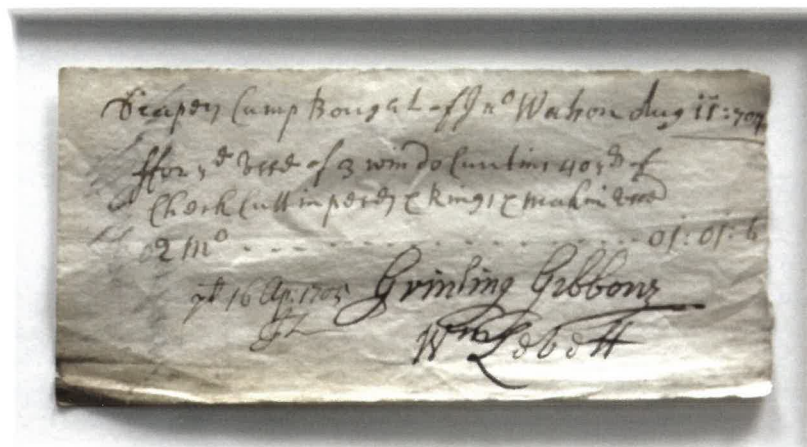 Drapers Comp Bought of Jno Watson Aug 11: 1704
ffor ye Vse of 3 windo Curtins 40 yds of
Check Cutt in peces & Rings & makin Vsed
02 mo - - - - - - - - - - - - - 01: 01: 6
16 Ap: 1705 Grinling Gibbons
Wm Lebett